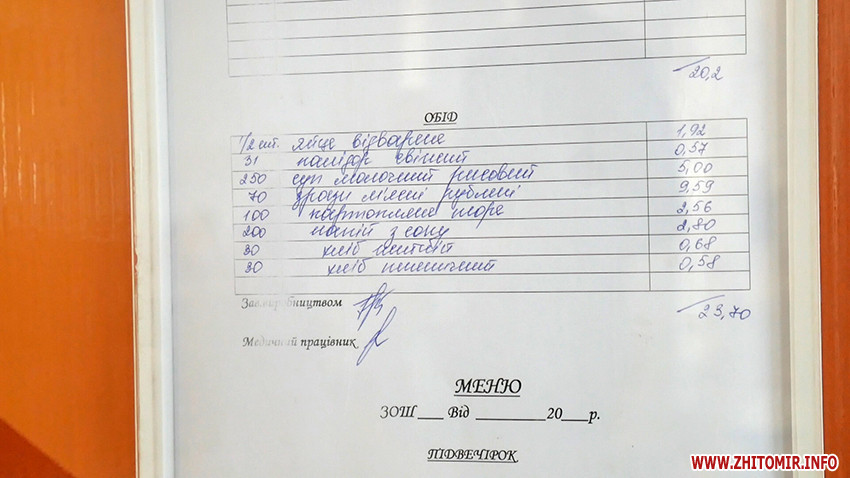 20,2
ОБІД
1/2 шт. яйце відварене 1,92
31 помідор свіжий 0,57
250 суп молочний рисовий 5,00
70 зрази м'ясні рублені 9,59
100 картопляне пюре 2,56
200 напій з соку 2,80
30 хліб житній 0,68
30 хліб пшеничний 0,58
23,70
Зав.виробництвом
Медичний працівник
МЕНЮ
ЗОШ ____ Від __________20____р.
ПІДВЕЧІРОК
WWW.ZHITOMIR.INFO